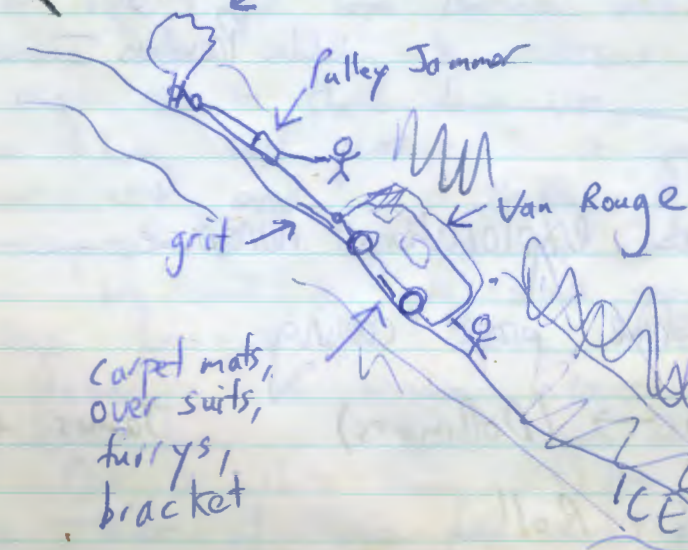 Pulley Jammer
Van Rouge
grit
carpet mats,
over suits,
furrys,
bracket
ICE